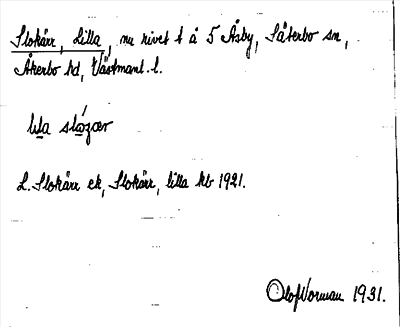 Slokärr, Lilla, nu rivet t å 5 Åsby, Säterbo sn,
Åkerbo hd, Västmanl. l.
lıla slåzær
L. Slokärr ek, Slokärr, lilla kb 1921.
Olof Norman 1931.